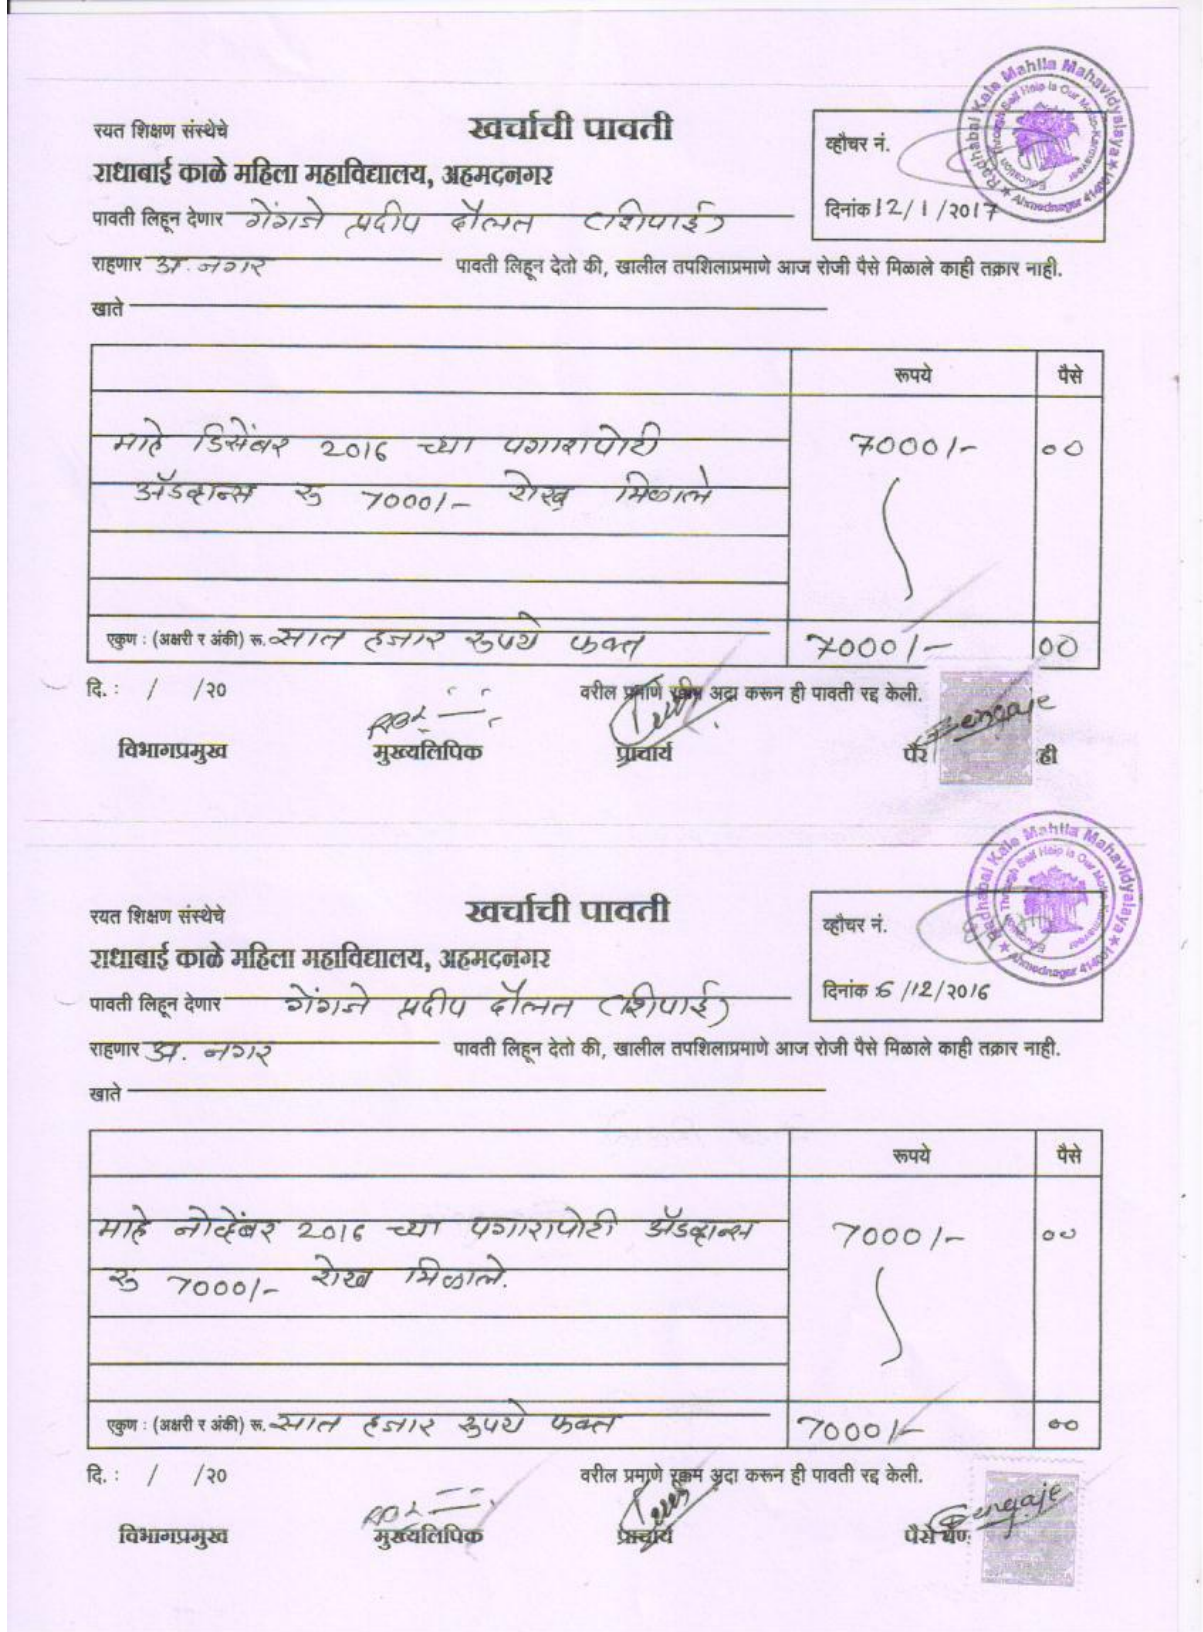 Radhabai Kale Mahila Mahavidyalaya ★ Ahmednagar 414001 ★
Education Through Self Help is Our Motto-Karmaveer
रयत शिक्षण संस्थेचे
खर्चाची पावती
व्हौचर नं.
राधाबाई काळे महिला महाविद्यालय, अहमदनगर
पावती लिहून देणार गेंगजे प्रदीप दौलत (शिपाई)
दिनांक 12/1/2017
राहणार अ. नगर पावती लिहून देतो की, खालील तपशिलाप्रमाणे आज रोजी पैसे मिळाले काही तक्रार नाही.
खाते
रूपये पैसे
माहे डिसेंबर 2016 च्या पगारापोटी 7000/- 00
अॅडव्हान्स रु 7000/- रोख मिळाले
एकुण : (अक्षरी र अंकी) रू. सात हजार रुपये फक्त 7000/- 00
दि. : / /२० वरील प्रमाणे रक्कम अदा करून ही पावती रद्द केली.
Gengaje
विभागप्रमुख मुख्यलिपिक प्राचार्य पै ही
Radhabai Kale Mahila Mahavidyalaya ★ Ahmednagar 414001 ★
Education Through Self Help is Our Motto-Karmaveer
रयत शिक्षण संस्थेचे
खर्चाची पावती
व्हौचर नं.
राधाबाई काळे महिला महाविद्यालय, अहमदनगर
पावती लिहून देणार गेंगजे प्रदीप दौलत (शिपाई)
दिनांक 6/12/2016
राहणार अ. नगर पावती लिहून देतो की, खालील तपशिलाप्रमाणे आज रोजी पैसे मिळाले काही तक्रार नाही.
खाते
रूपये पैसे
माहे नोव्हेंबर 2016 च्या पगारापोटी अॅडव्हान्स 7000/- 00
रु 7000/- रोख मिळाले.
एकुण : (अक्षरी र अंकी) रू. सात हजार रुपये फक्त 7000/- 00
दि. : / /२० वरील प्रमाणे रक्कम अदा करून ही पावती रद्द केली.
Gengaje
विभागप्रमुख मुख्यलिपिक प्राचार्य पैसे घेण